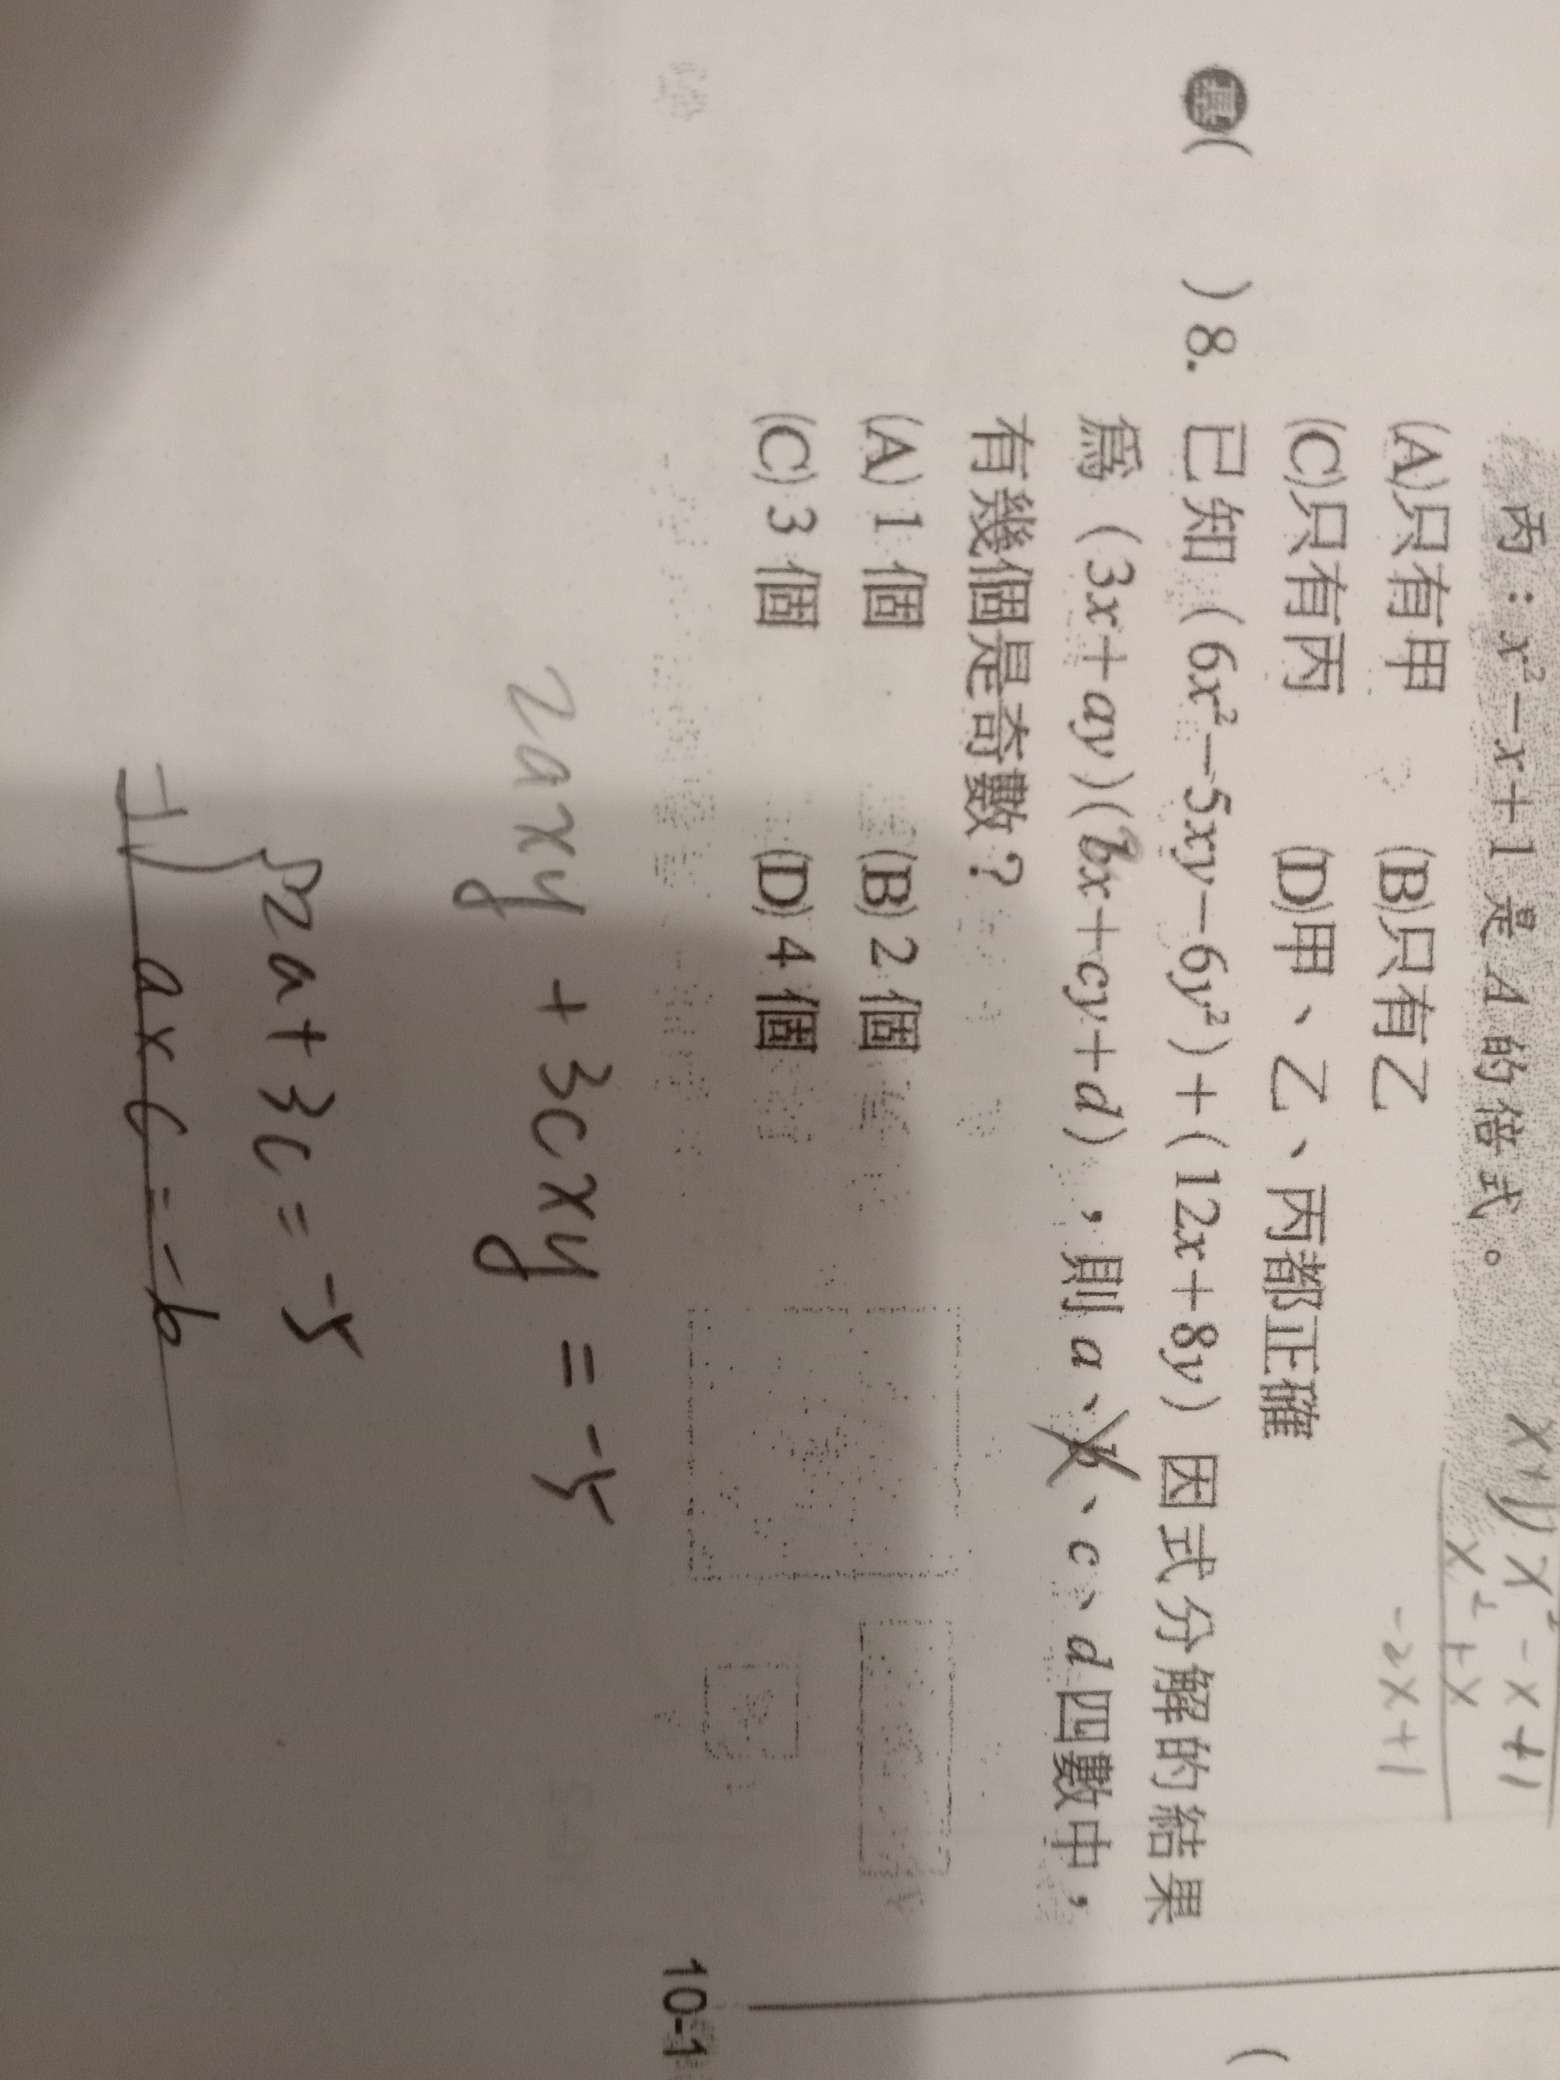 丙：x²－x＋1 是 A 的倍式。
(A)只有甲 (B)只有乙
(C)只有丙 (D)甲、乙、丙都正確
x+1) x²-x+1
x²+x
-2x+1
( ) 8. 已知（6x²－5xy－6y²）＋（12x＋8y）因式分解的結果
為（3x＋ay）（bx＋cy＋d），則 a、b、c、d 四數中，
有幾個是奇數？
(A) 1 個 (B) 2 個
(C) 3 個 (D) 4 個
2axy + 3cxy = -5
{2a+3c=-5
a×c=-6
10-1
(